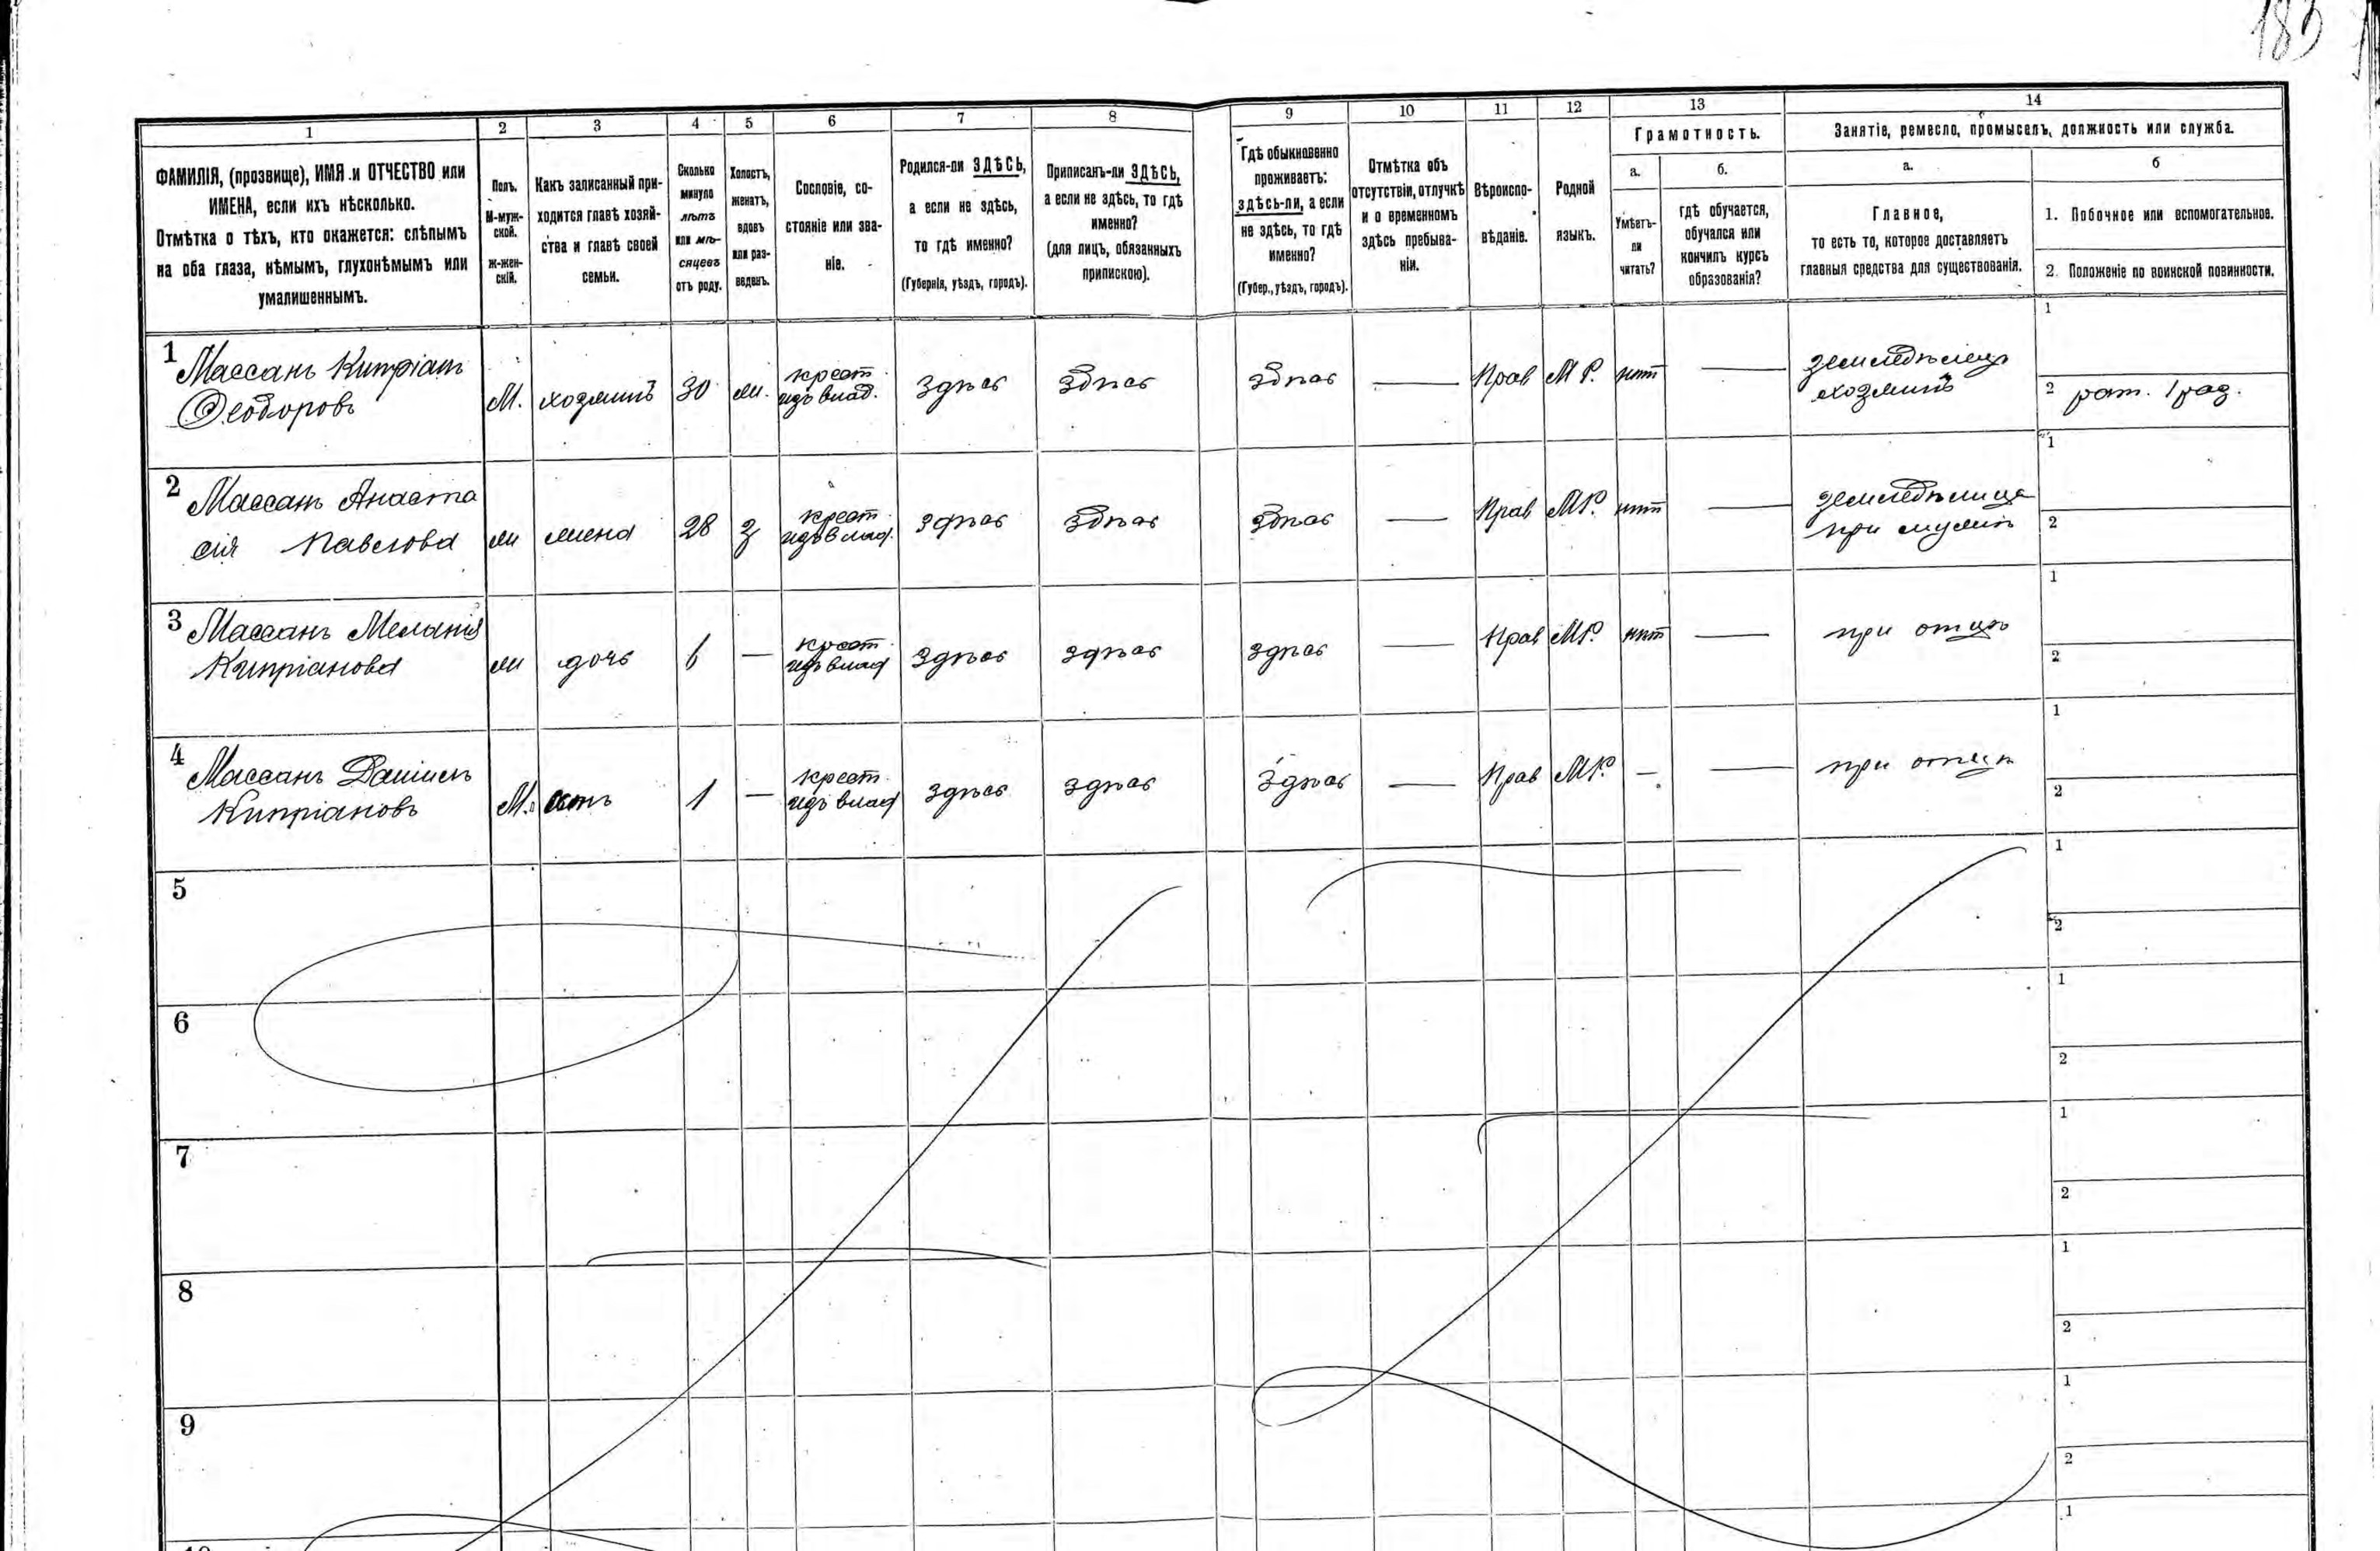 183
1
2
3
4
5
6
7
8
9
10
11
12
13
14
ФАМИЛІЯ, (прозвище), ИМЯ и ОТЧЕСТВО или
ИМЕНА, если ихъ нѣсколько.
Отмѣтка о тѣхъ, кто окажется: слѣпымъ
на оба глаза, нѣмымъ, глухонѣмымъ или
умалишеннымъ.
Полъ.
М-муж-
ской.
ж-жен-
скій.
Какъ записанный при-
ходится главѣ хозяй-
ства и главѣ своей
семьи.
Сколько
минуло
лѣтъ
или мѣ-
сяцевъ
отъ роду.
Холостъ,
женатъ,
вдовъ
или раз-
веденъ.
Сословіе, со-
стояніе или зва-
ніе.
Родился-ли ЗДѢСЬ,
а если не здѣсь,
то гдѣ именно?
(Губернія, уѣздъ, городъ).
Приписанъ-ли ЗДѢСЬ,
а если не здѣсь, то гдѣ
именно?
(для лицъ, обязанныхъ
припискою).
Гдѣ обыкновенно
проживаетъ:
здѣсь-ли, а если
не здѣсь, то гдѣ
именно?
(Губер., уѣздъ, городъ).
Отмѣтка объ
отсутствіи, отлучкѣ
и о временномъ
здѣсь пребыва-
ніи.
Вѣроиспо-
вѣданіе.
Родной
языкъ.
Грамотность.
а.
Умѣетъ-
ли
читать?
б.
гдѣ обучается,
обучался или
кончилъ курсъ
образованія?
Занятіе, ремесло, промыселъ, должность или служба.
а.
Главное,
то есть то, которое доставляетъ
главныя средства для существованія.
б
1. Побочное или вспомогательное.
2. Положеніе по воинской повинности.
1 Массанъ Кипріанъ
Ѳеодоровъ
М. хозяинъ 30 ж. крест.
изъ влад. здѣсь здѣсь здѣсь — Прав М Р. нѣт —
земледѣлецъ
хозяинъ
1
2 рат. 1 раз.
2 Массанъ Анаста
сія Павлова
ж жена 28 з крест.
изъ влад. здѣсь здѣсь здѣсь — Прав М.Р. нѣт —
земледѣлица
при мужѣ
1
2
3 Массанъ Меланія
Кипріанова
ж дочь 6 — крест.
изъ влад здѣсь здѣсь здѣсь — Прав М.Р. нѣт —
при отцѣ
1
2
4 Массанъ Даніилъ
Кипріановъ
М. сынъ 1 — крест.
изъ влад здѣсь здѣсь здѣсь — Прав М.Р. — —
при отцѣ
1
2
5
1
2
6
1
2
7
1
2
8
1
2
9
1
2
10
1